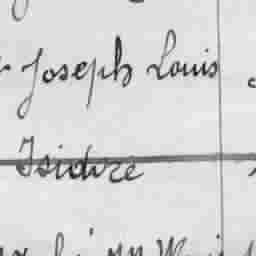 Joseph Louis
Isidore